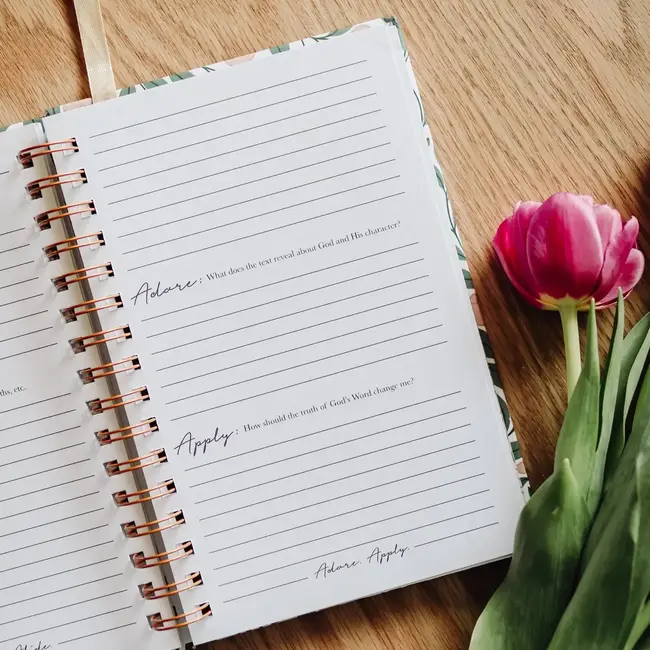 ths, etc.
Adore: What does the text reveal about God and His character?
Apply: How should the truth of God's Word change me?
Adore. Apply.